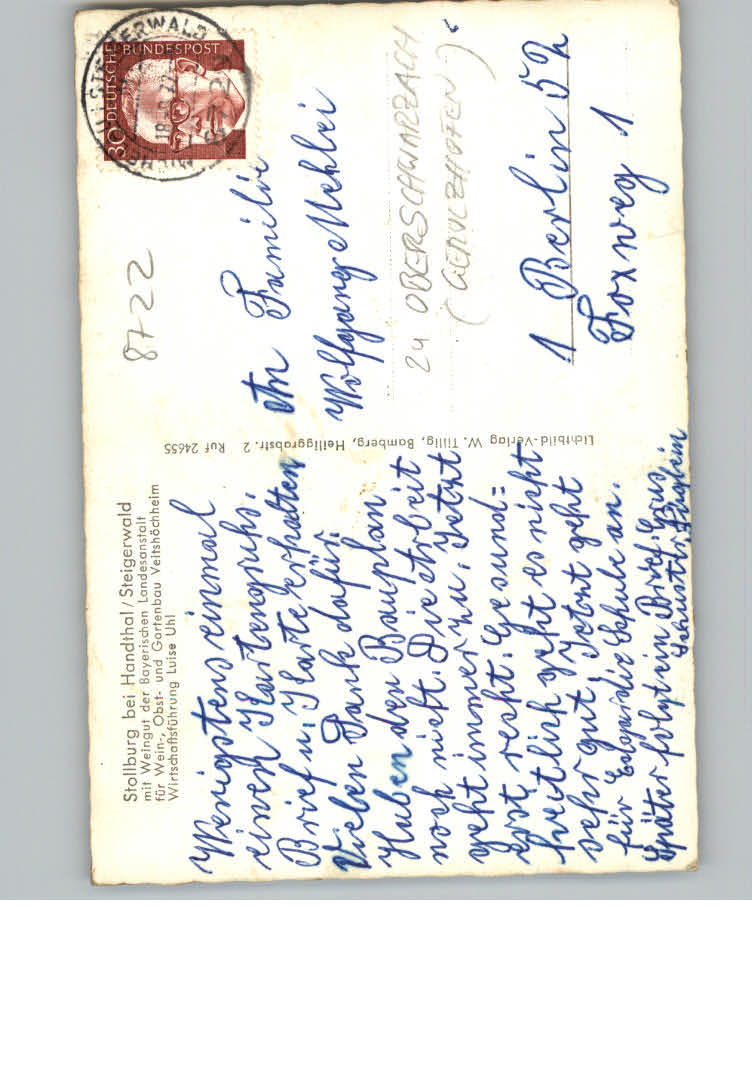 Stollburg bei Handthal/Steigerwald
mit Weingut der Bayerischen Landesanstalt
für Wein-, Obst- und Gartenbau Veitshöchheim
Wirtschaftsführung Luise Uhl
Wenigstens einmal
einen Kartengruß.
Brief u. Karte erhalten
Vielen Dank dafür.
Haben den Bauplan
noch nicht. Die Arbeit
geht immer zu. Jetzt
erst recht. Gesund=
heitlich geht es nicht
sehr gut. Jetzt geht
für die Schule an.
Später folgt ein Brief. Gruß
Lichtbild-Verlag W. Tillig, Bamberg, Heiliggrabstr. 2 Ruf 24655
8722
STEIGERWALD
DEUTSCHE BUNDESPOST
30
An Familie
Wolfgang
ZU OBERSCHWARZACH
(GEROLZHOFEN)
1 Berlin 52
Foxweg 1